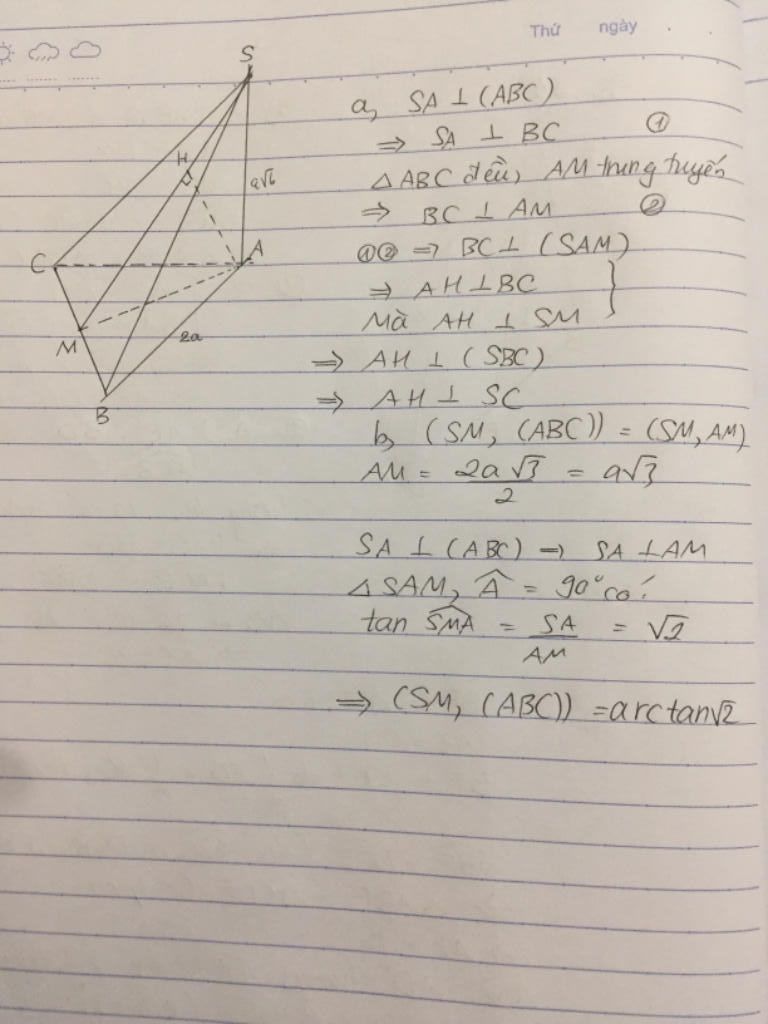 Thứ ngày
S
H
a√6
C
A
M
2a
B
a, SA ⊥ (ABC)
⇒ SA ⊥ BC ①
△ABC đều, AM trung tuyến
⇒ BC ⊥ AM ②
①② ⇒ BC ⊥ (SAM)
⇒ AH ⊥ BC }
Mà AH ⊥ SM
⇒ AH ⊥ (SBC)
⇒ AH ⊥ SC
b, (SM, (ABC)) = (SM, AM)
AM = 2a√3/2 = a√3
SA ⊥ (ABC) ⇒ SA ⊥ AM
△SAM, Â = 90° có:
tan SMA = SA/AM = √2
⇒ (SM, (ABC)) = arctan√2